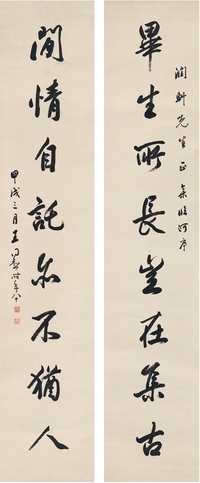 潤軒先生正 集臨河序
畢生所長豈在集古
閒情自託亦不猶人
甲戌三月王同愈時年八十